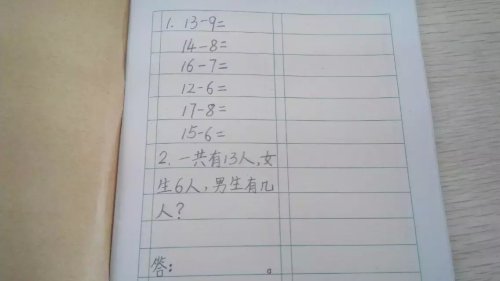 1. 13-9=
14-8=
16-7=
12-6=
17-8=
15-6=
2. 一共有13人,女
生6人,男生有几
人?
答: 。